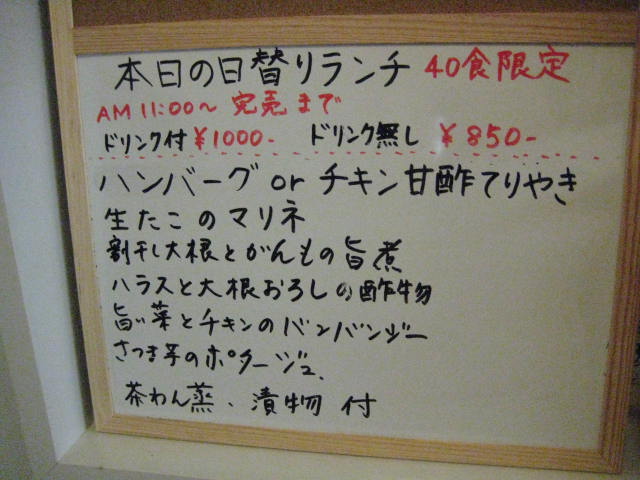 本日の日替りランチ 40食限定
AM 11:00～ 完売まで
ドリンク付 ¥1000- ドリンク無し ¥850-
ハンバーグ or チキン甘酢てりやき
生たこのマリネ
割干し大根とがんもの旨煮
ハラスと大根おろしの酢物
旨い菜とチキンのバンバンジー
さつま芋のポタージュ、
茶わん蒸、漬物 付